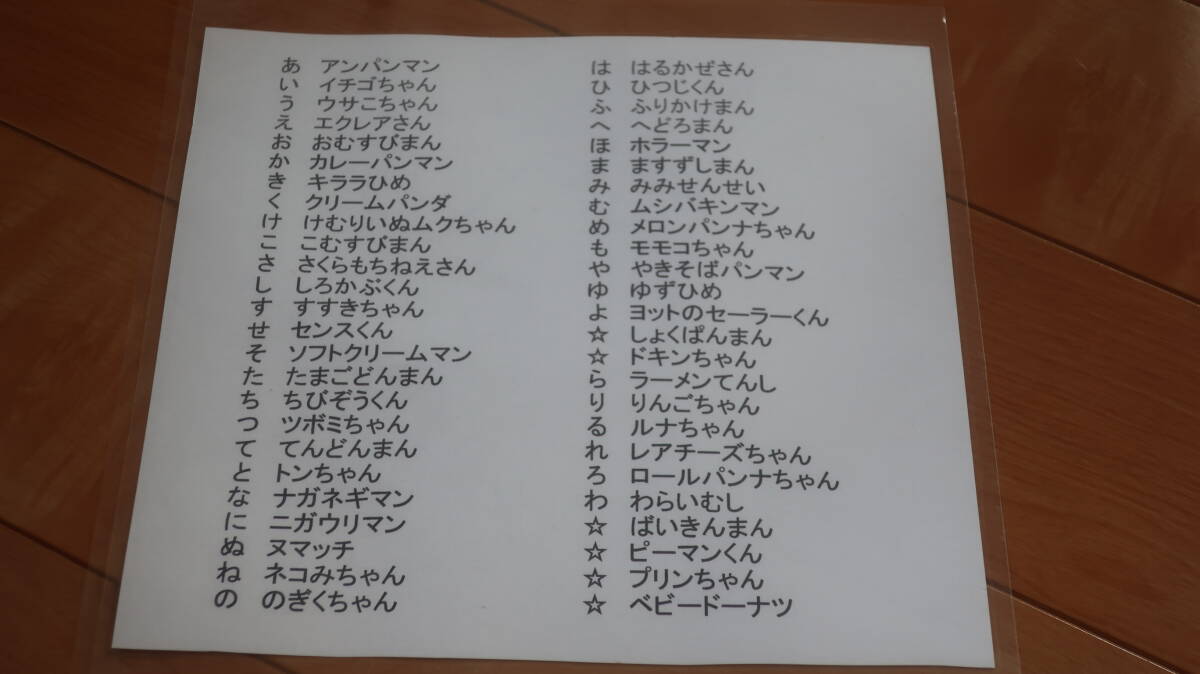 あ　アンパンマン
い　イチゴちゃん
う　ウサこちゃん
え　エクレアさん
お　おむすびまん
か　カレーパンマン
き　キララひめ
く　クリームパンダ
け　けむりいぬムクちゃん
こ　こむすびまん
さ　さくらもちねえさん
し　しろかぶくん
す　すすきちゃん
せ　センスくん
そ　ソフトクリームマン
た　たまごどんまん
ち　ちびぞうくん
つ　ツボミちゃん
て　てんどんまん
と　トンちゃん
な　ナガネギマン
に　ニガウリマン
ぬ　ヌマッチ
ね　ネコみちゃん
の　のぎくちゃん
は　はるかぜさん
ひ　ひつじくん
ふ　ふりかけまん
へ　へどろまん
ほ　ホラーマン
ま　ますずしまん
み　みみせんせい
む　ムシバキンマン
め　メロンパンナちゃん
も　モモコちゃん
や　やきそばパンマン
ゆ　ゆずひめ
よ　ヨットのセーラーくん
☆　しょくぱんまん
☆　ドキンちゃん
ら　ラーメンてんし
り　りんごちゃん
る　ルナちゃん
れ　レアチーズちゃん
ろ　ロールパンナちゃん
わ　わらいむし
☆　ばいきんまん
☆　ピーマンくん
☆　プリンちゃん
☆　ベビードーナツ